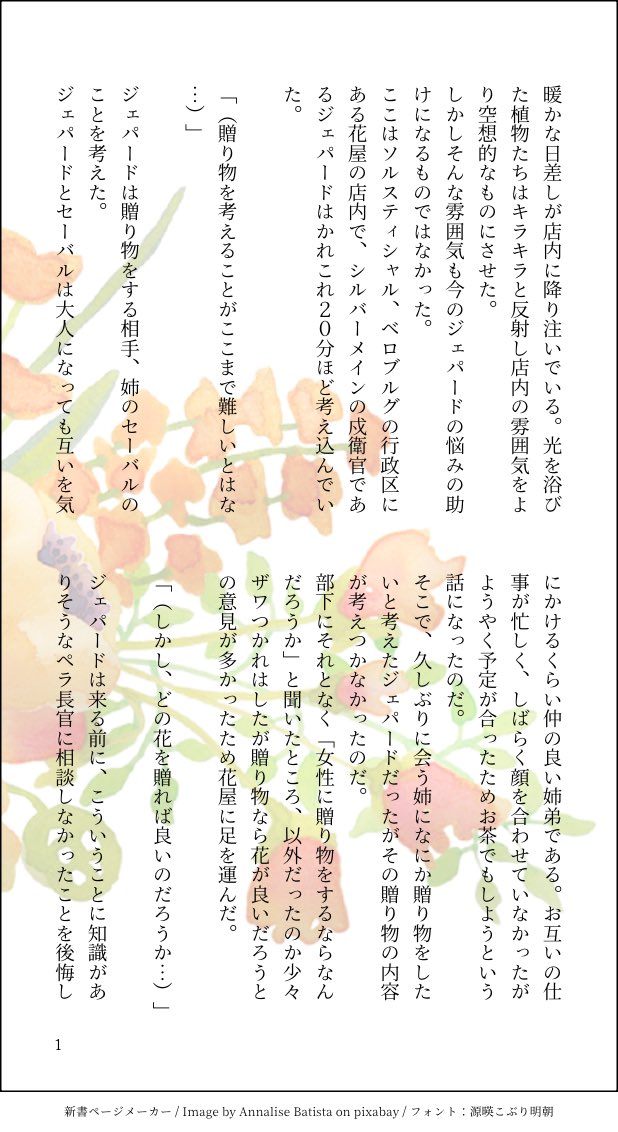 暖かな日差しが店内に降り注いでいる。光を浴び
た植物たちはキラキラと反射し店内の雰囲気をよ
り空想的なものにさせた。
しかしそんな雰囲気も今のジェパードの悩みの助
けになるものではなかった。
ここはソルスティシャル、ベロブルグの行政区に
ある花屋の店内で、シルバーメインの戍衛官であ
るジェパードはかれこれ２０分ほど考え込んでい
た。
「（贈り物を考えることがここまで難しいとはな
…）」
ジェパードは贈り物をする相手、姉のセーバルの
ことを考えた。
ジェパードとセーバルは大人になっても互いを気
にかけるくらい仲の良い姉弟である。お互いの仕
事が忙しく、しばらく顔を合わせていなかったが
ようやく予定が合ったためお茶でもしようという
話になったのだ。
そこで、久しぶりに会う姉になにか贈り物をした
いと考えたジェパードだったがその贈り物の内容
が考えつかなかったのだ。
部下にそれとなく「女性に贈り物をするならなん
だろうか」と聞いたところ、以外だったのか少々
ザワつかれはしたが贈り物なら花が良いだろうと
の意見が多かったため花屋に足を運んだ。
「（しかし、どの花を贈れば良いのだろうか…）」
ジェパードは来る前に、こういうことに知識があ
りそうなペラ長官に相談しなかったことを後悔し
1
新書ページメーカー / Image by Annalise Batista on pixabay / フォント：源暎こぶり明朝